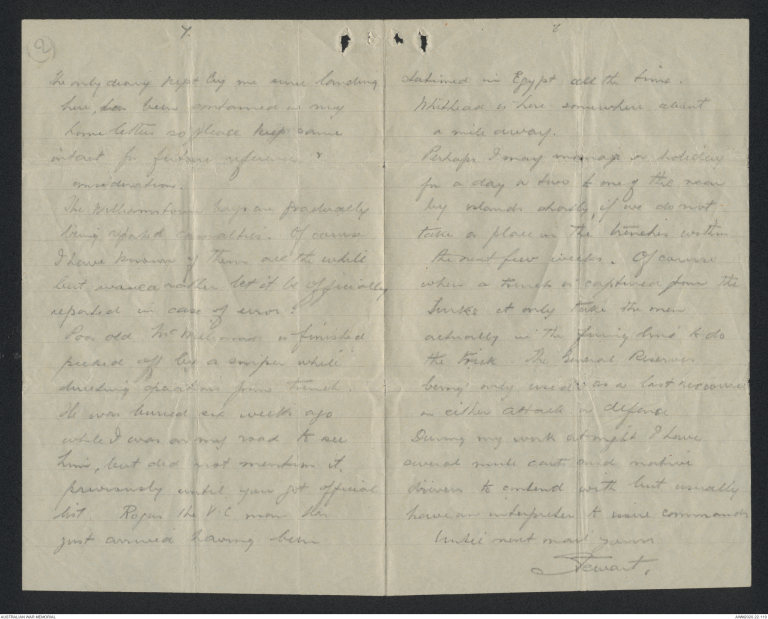 (2)
7.
The only diary kept by me since landing
here, has been contained in my
home letters so please keep same
intact for future reference &
consideration.
The Williamstown boys are gradually
being reported casualties. Of course
I have known of them all the while
but would rather let it be officially
reported in case of error.
Poor old McWilliams is finished
picked off by a sniper while
directing operations from trench.
He was buried six weeks ago
while I was on my road to see
him, but did not mention it,
previously until you got official
list. Rogers the V.C man has
just arrived having been
detained in Egypt all the time.
Whithead is here somewhere about
a mile away.
Perhaps I may manage a holiday
for a day or two to one of the near
by islands shortly, if we do not
take a place in the trenches within
the next few weeks. Of course
when a trench is captured from the
Turks it only takes the men
actually in the firing line to do
the trick The General Reserves
being only used as a last recourse
in either attack or defence
During my work at night I have
several mule carts and native
drivers to contend with but usually
have an interpreter to issue commands
Until next mail yours
Stewart.
AUSTRALIAN WAR MEMORIAL